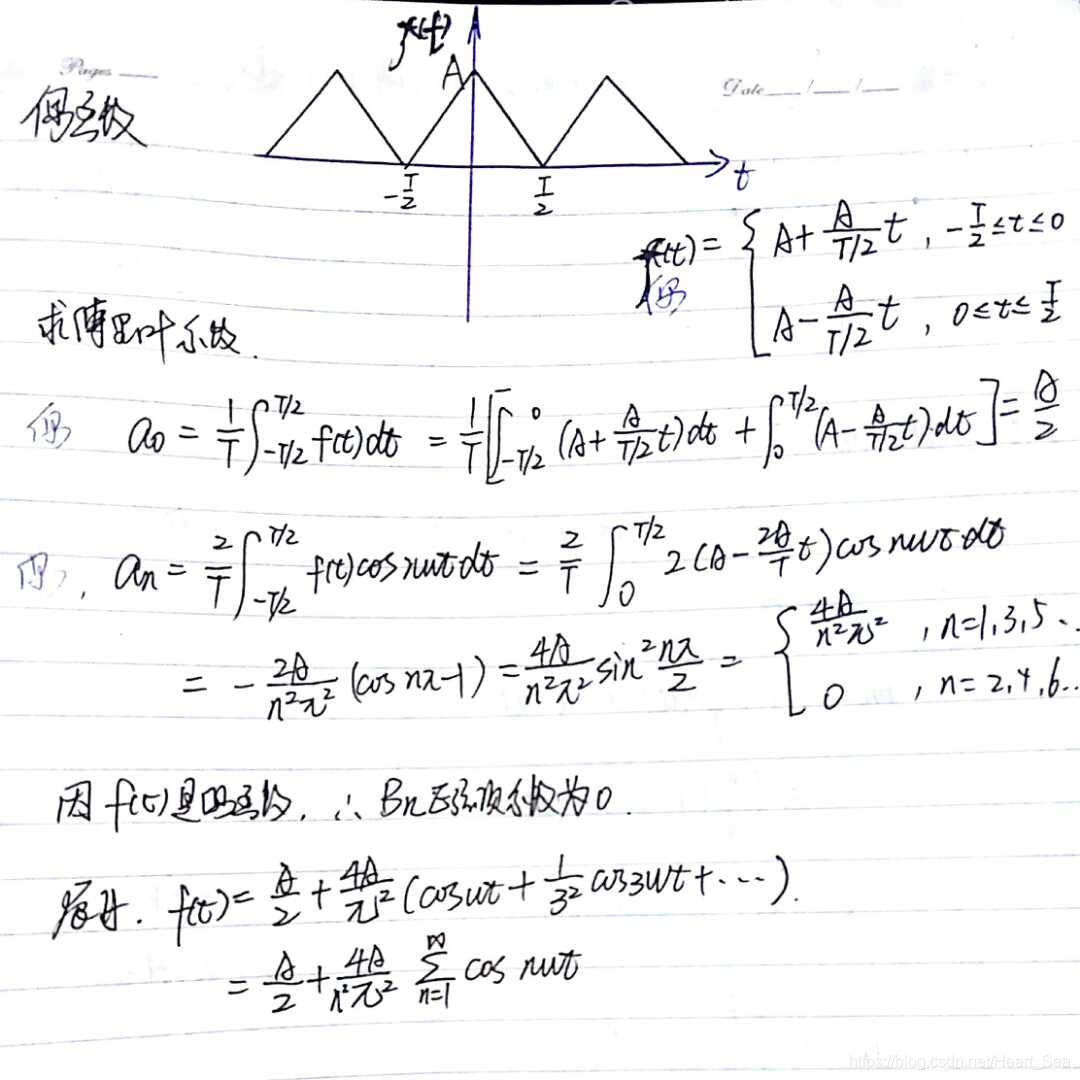 f(t)
Pages
A
Date / /
偶函数
-T/2 T/2 t
f(t) = { A + A/(T/2) t , -T/2 ≤ t ≤ 0
偶
A - A/(T/2) t , 0 ≤ t ≤ T/2
求傅里叶系数.
偶 a₀ = 1/T ∫_{-T/2}^{T/2} f(t)dt = 1/T [∫_{-T/2}^{0} (A + A/(T/2) t)dt + ∫_{0}^{T/2} (A - A/(T/2) t)·dt] = A/2
偶, aₙ = 2/T ∫_{-T/2}^{T/2} f(t)cos nωt dt = 2/T ∫_{0}^{T/2} 2(A - 2A/T t)cos nωt dt
= - 2A/(n²π²) (cos nπ - 1) = 4A/(n²π²) sin² nπ/2 = { 4A/(n²π²) , n=1,3,5..
0 , n=2,4,6..
因f(t)是偶函数, ∴ Bn正弦项系数为0.
f(t) = A/2 + 4A/π² (cos ωt + 1/3² cos3ωt + ···).
= A/2 + 4A/(n²π²) ∑_{n=1}^{∞} cos nωt
https://blog.csdn.net/Heart_Sea